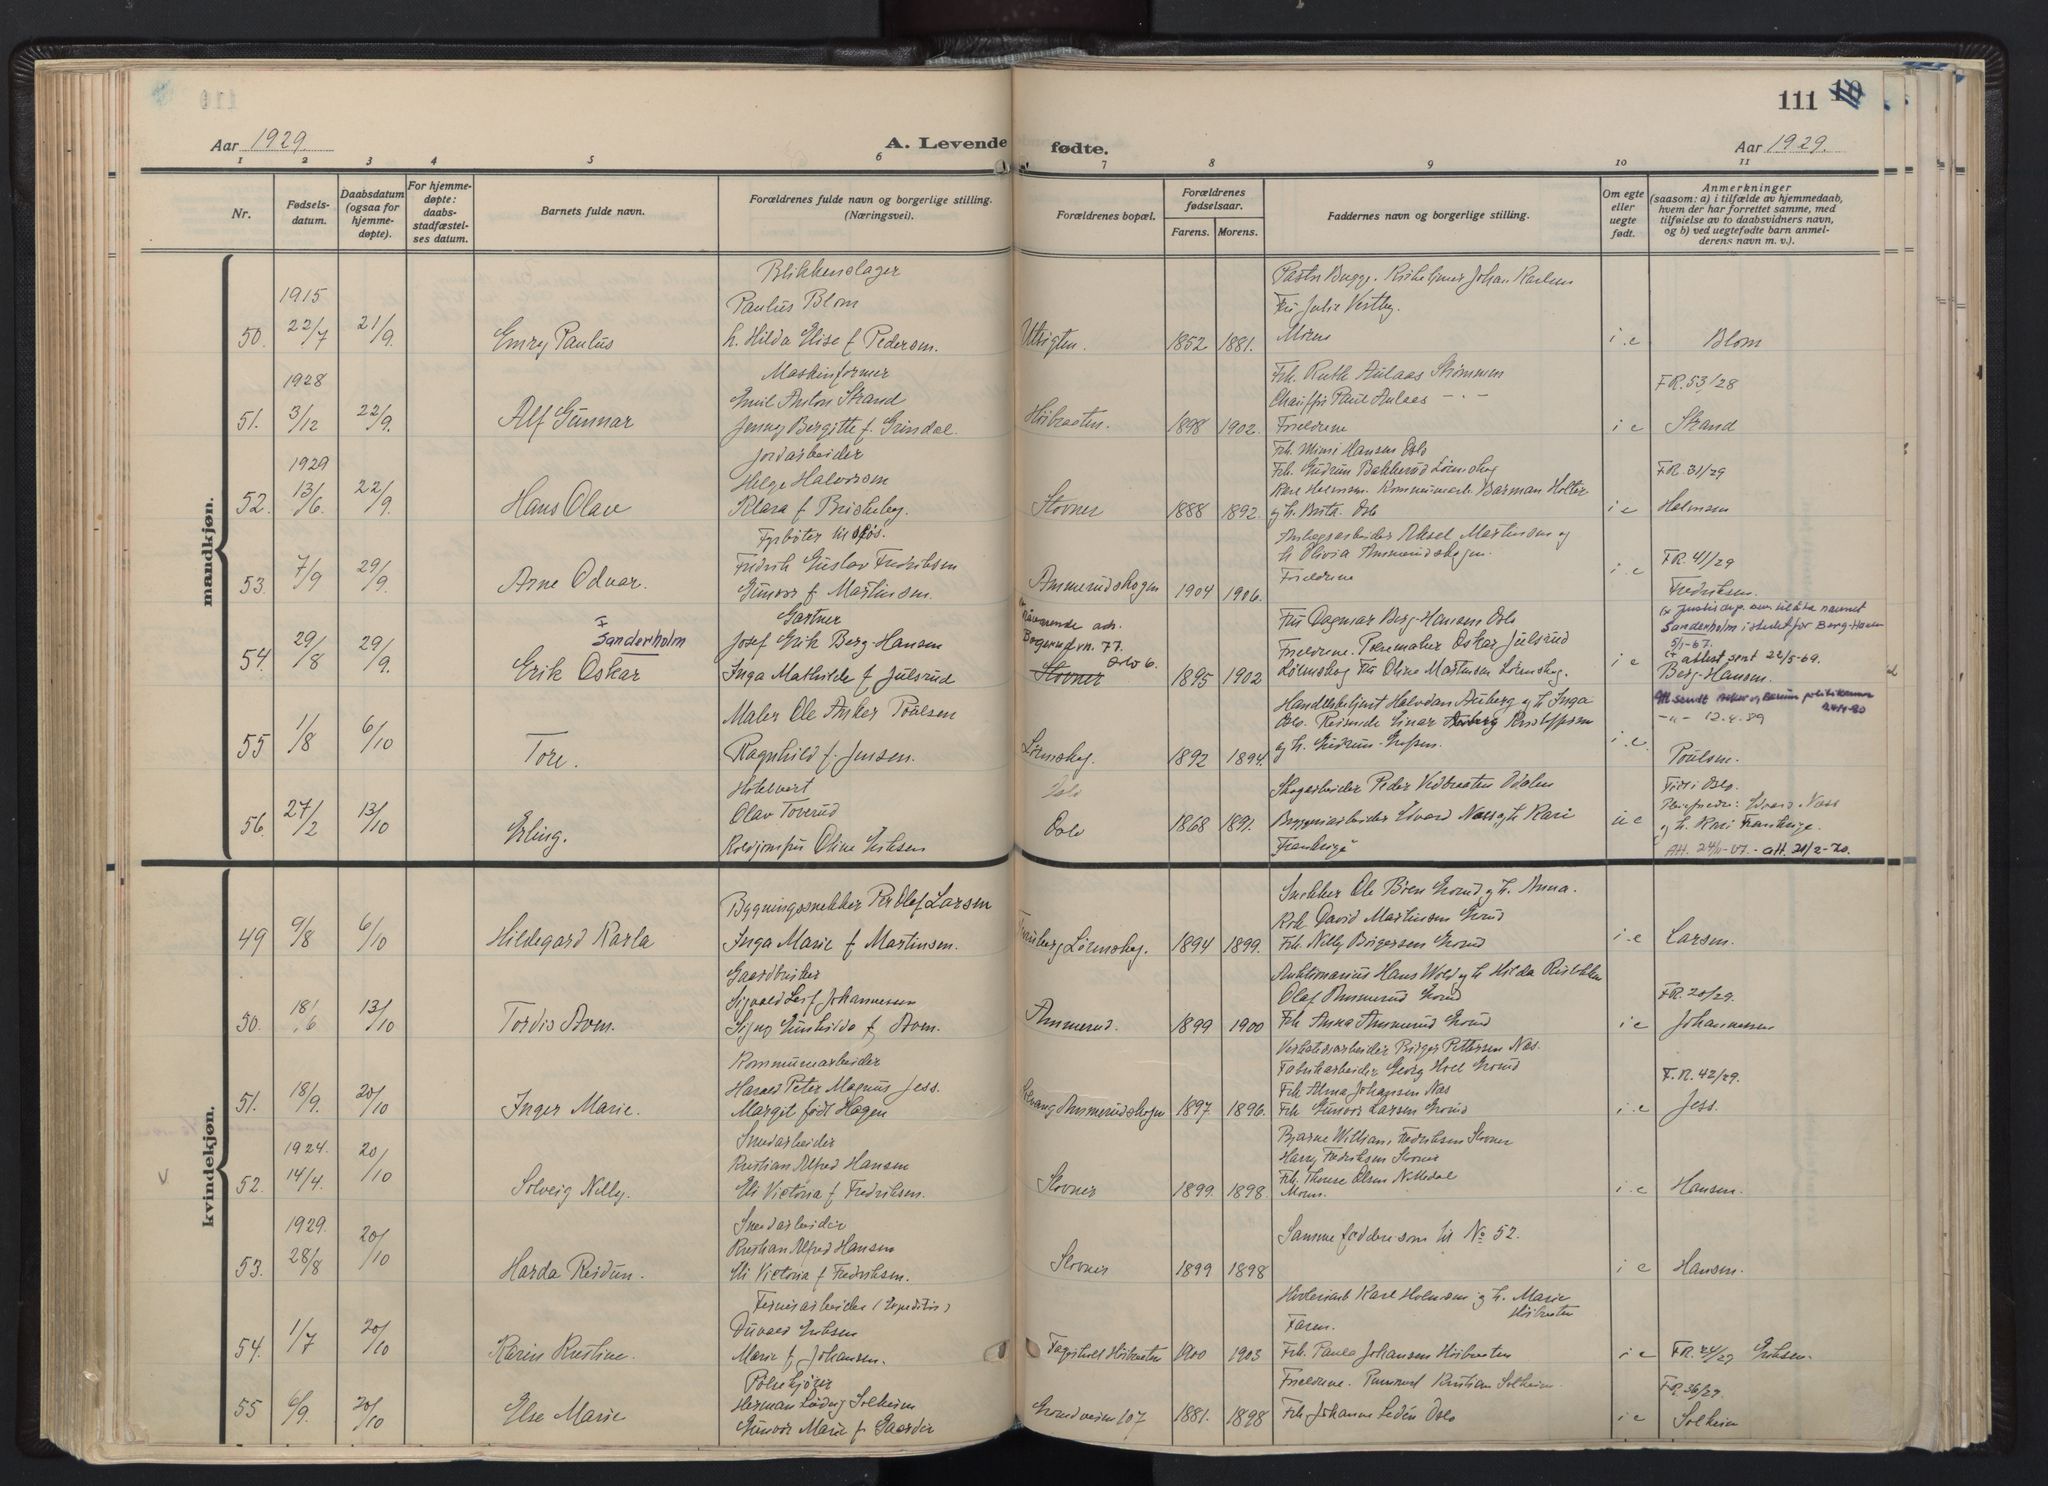 111
Aar 1929.
A. Levende fødte.
Aar 1929.
1 2 3 4 5 6 7 8 9 10 11
Nr.
Fødsels-
datum.
Daabsdatum
(ogsaa for
hjemme-
døpte).
For hjemme-
døpte:
daabs-
stadfæstel-
ses datum.
Barnets fulde navn.
Forældrenes fulde navn og borgerlige stilling.
(Næringsvei).
Forældrenes bopæl.
Forældrenes
fødselsaar.
Farens. Morens.
Faddernes navn og borgerlige stilling.
Om egte
eller
uegte
født.
Anmerkninger
(saasom: a) i tilfælde av hjemmedaab,
hvem der har forrettet samme, med
tilføielse av to daabsvidners navn,
og b) ved uegtefødte barn anmel-
derens navn m. v.).
mandkjøn.
1915
50. 22/7 21/9.
Emry Paulus
Blikkenslager
Paulus Blom
h. Hilda Elise f Pedersen.
Utsigten.
1852 1881.
Pastor Bugge. Kirketjener Johan Karlsen
Fru Julie Vestby.
Moren
i e
Blom
1928
51. 3/12 22/9.
Alf Gunnar
Maskinformer
Emil Anton Strand
Jenny Bergitte f. Grindal.
Høibraaten.
1898 1902.
Frk. Ruth Aulaas Strømmen
Chauffør Paul Aulaas — " —
Forældrene
i e
F.R. 53/28
Strand
1929
52. 13/6. 22/9.
Hans Olav
Jordarbeider
Helge Halvorsen
Klara f Briskeby.
Stovner
1888 1892.
Frk. Mimi Hansen Oslo
Frk. Gudrun Bakkerud Lørenskog
Karl Holmsen. Kommunearb. Barman Holter
og h. Berta. Oslo
i e
F.R. 31/29
53. 7/9 29/9.
Arne Odvar.
Fyrbøter til sjøs.
Fredrik Gustav Fredriksen
Gunvor f Martinsen.
Ammerudskogen
1904 1906.
Anlegsarbeider Aksel Martinsen og
h Olivia Ammerudskogen.
Forældrene
i e
F.R. 41/29
Fredriksen.
54. 29/8 29/9.
Sanderholm
Erik Oskar
Gartner
Josef Erik Berg-Hansen
Inga Mathilde f Julsrud
Nåværende adr.
Bogerudvn. 77.
Oslo 6.
Stovner
1895 1902
Fru Dagmar Berg-Hansen Oslo
Forældrene. Oskar Julsrud
Lørenskog Fru Oline Martinsen Lørenskog.
i e
Sanderholm istedet for Berg-Hansen
5/1-67.
attest sent 22/5-69.
Berg-Hansen.
55 1/8 6/10
Tore.
Maler Ole Anker Poulsen
Ragnhild f. Jensen.
Lørenskog.
1892 1894.
i e.
Att. sendt Asker og Bærum politikammer
— " — 12.4.89
Poulsen.
56. 27/2 13/10
Erling.
Hotelvert
Olav Toverud
Koldjomfru Oline Eriksen
Oslo
1868 1891.
Skogarbeider Peder Vedbraaten Odalen
Bryggeriarbeider Edvard Næss og h. Kari
"Framberge"
u e
Født i Oslo.
Pleieforeldre: Edvard Næss
og h. Kari Framberge.
Att. 24/11-07. - att. 21/2-70.
kvindekjøn.
49 9/8 6/10
Hildegard Karla
Bygningssnekker Per Olaf Larsen
Inga Marie f Martinsen.
Lørenskog.
1894 1899.
Snekker Ole Bøen Grorud og h. Anna.
Rørl. David Martinsen Grorud
Frk Nelly Børgersen Grorud
i e
Larsen.
50. 18/6 13/10
Tordis Aven.
Gaardbruker
Sigvald Leif Johannessen
Signy Gunhilda f Aven.
Ammerud.
1899 1900
Auktionarius Hans Wold og h Hilda Risløkken
Olaf Ammerud Grorud
Frk Anna Ammerud Grorud
i e
F.R. 20/29.
Johannessen
51. 18/9. 20/10
Inger Marie.
Kommunearbeider
Harald Peter Magnus Jess.
Margit født Hagen
Ammerudskogen
1897 1896.
Verkstedsarbeider Birger Pettersen Næs.
Fabrikarbeider Georg Hoel Grorud
Frk Alma Johansen Næs
Frk Gunvor Larsen Grorud
i e
F.R. 42/29.
Jess.
V
1924.
52. 14/4. 20/10
Solveig Nelly.
Smedarbeider
Kristian Alfred Hansen
Eli Victoria f Fredriksen.
Stovner
1899. 1898
Bjarne William Fredriksen Stovner
Harry Fredriksen Stovner
Frk. Therese Olsen Nittedal
Moren.
i e
Hansen.
1929.
53. 28/8 20/10
Harda Reidun.
Smedarbeider
Kristian Alfred Hansen
Eli Victoria f Fredriksen.
Stovner
1899 1898
Samme faddere som til No 52.
i e
Hansen.
54. 1/7 20/10
Karin Kristine.
Fernisarbeider (Expeditør)
Osvald Eriksen
Marie f Johansen.
Fagerholt Høibraaten
1900 1903
Høvleriarb Karl Holmsen og h. Marie
Høibraaten
Faren.
Frk. Paula Johansen Høibraaten
i e
F.R. 24/29 Eriksen.
55 6/9. 20/10
Else Marie
Pølsekjører
Herman Ludvig Solheim
Gunvor Marie f. Gaarder
Grorudveien 107
1881. 1898
Forældrene. Kristian Solheim.
Frk Johanne Oslo
i e
F.R. 36/29.
Solheim